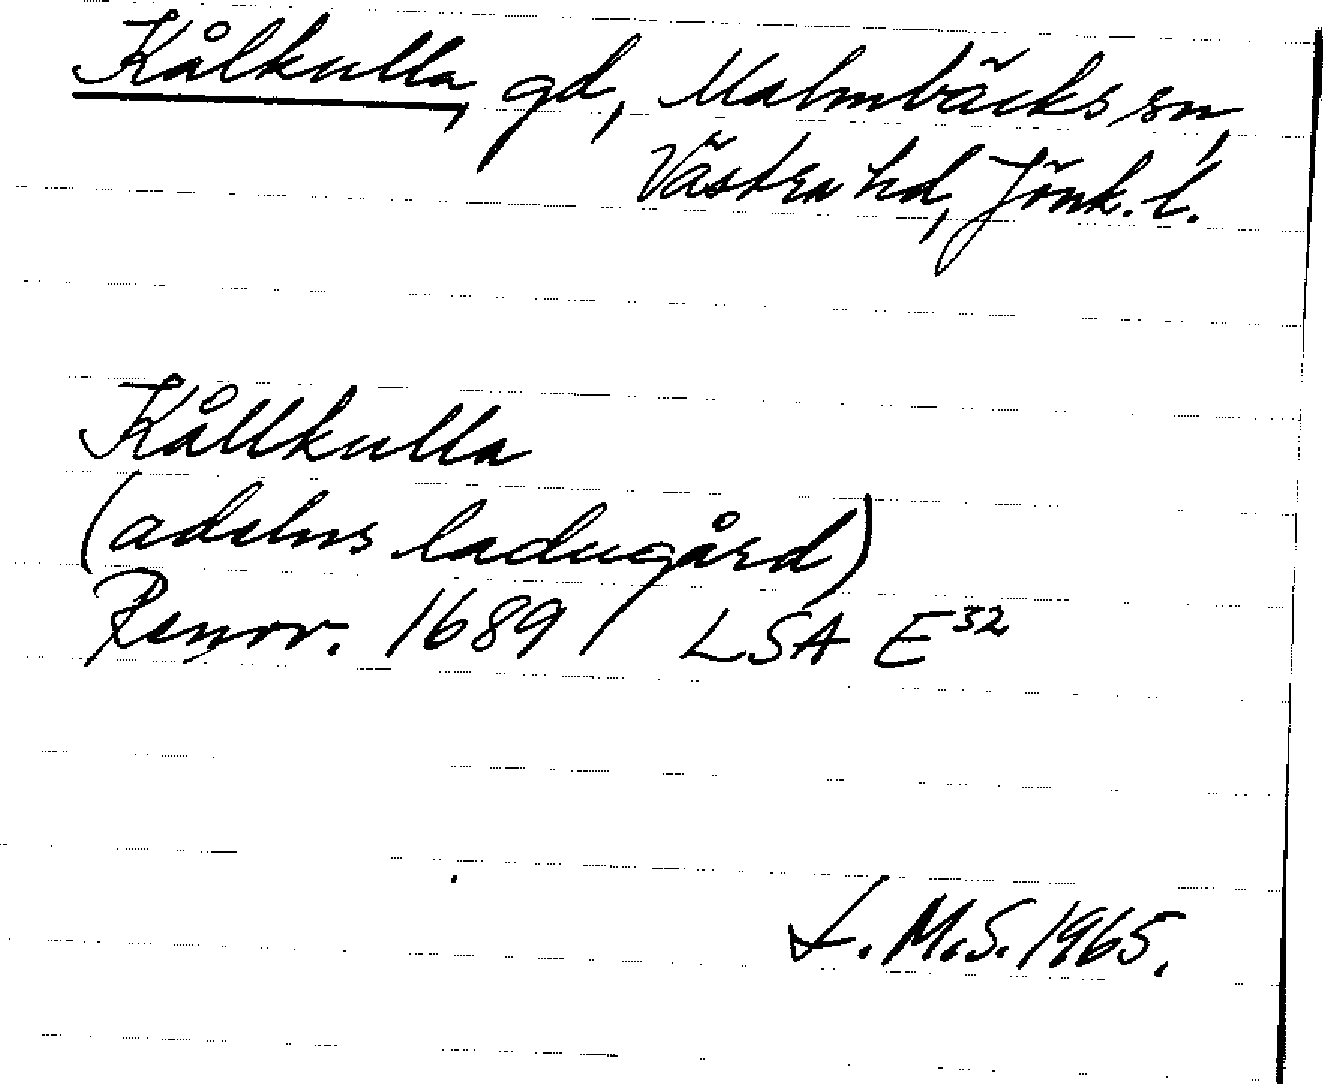 Kålkulla, gd, Malmbäcks sn,
Västra hd, Jönk. l.
Kållkulla
(adelns ladugård)
Renov. 1689 / LSA E32
L. M. S. 1965.